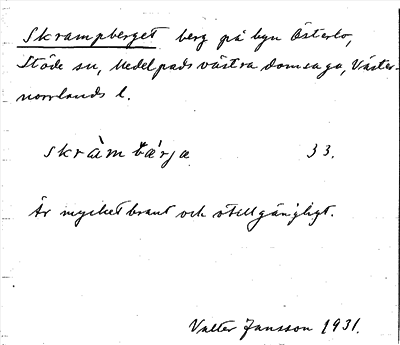 Skrampberget berg på byn Österlo,
Stöde sn, Medelpads västra domsaga, Väster-
norrlands l.
skràm bá̀rja 33.
Är mycket brant och otillgängligt.
Valter Jansson 1931.